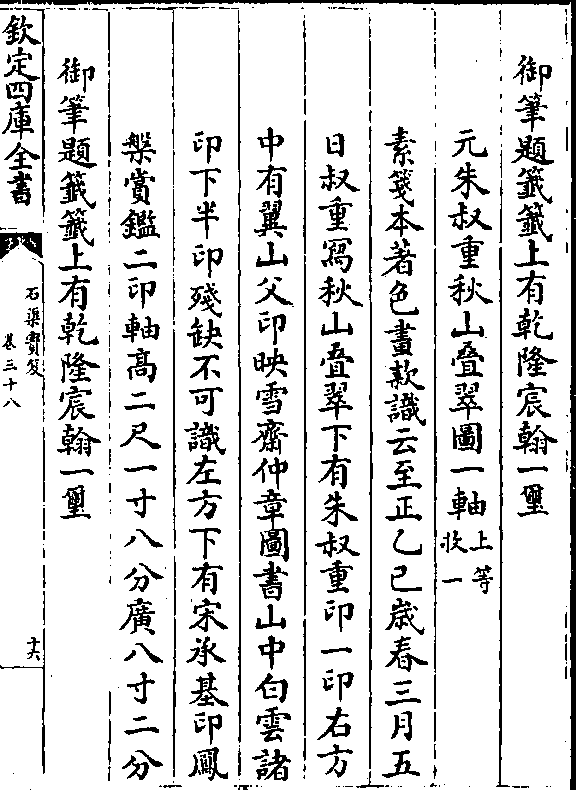 御筆題籤籤上有乾隆宸翰一璽
元朱叔重秋山叠翠圖一軸上等
收一
素箋本著色畫款識云至正乙巳歲春三月五
日叔重寫秋山叠翠下有朱叔重印一印右方
中有翼山父印映雪齋仲章圖書山中白雲諸
印下半印殘缺不可識左方下有宋承基印鳳
槃賞鑑二印軸高二尺一寸八分廣八寸二分
御筆題籤籤上有乾隆宸翰一璽
欽定四庫全書
石渠寶笈
卷三十八
十六